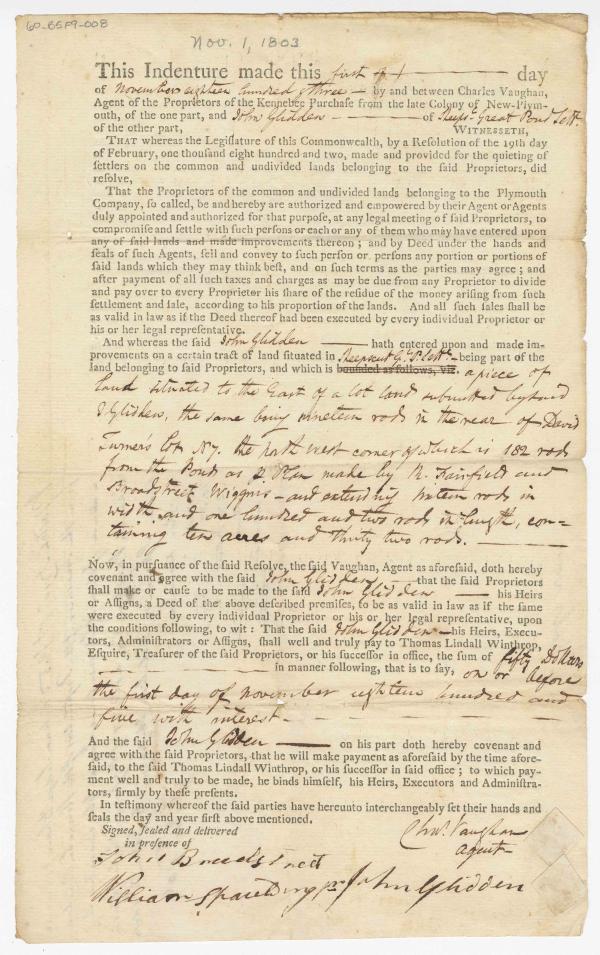 60-B5F9-008
Nov. 1, 1803
This Indenture made this first of day
of November eighteen hundred & three by and between Charles Vaughan,
Agent of the Proprietors of the Kennebec Purchase from the late Colony of New-Plym-
outh, of the one part, and John Glidden of Great Pond Settt.
of the other part, WITNESSETH,
THAT whereas the Legislature of this Commonwealth, by a Resolution of the 19th day
of February, one thousand eight hundred and two, made and provided for the quieting of
settlers on the common and undivided lands belonging to the said Proprietors, did
resolve,
That the Proprietors of the common and undivided lands belonging to the Plymouth
Company, so called, be and hereby are authorized and empowered by their Agent or Agents
duly appointed and authorized for that purpose, at any legal meeting of said Proprietors, to
compromise and settle with such persons or each or any of them who may have entered upon
any of said lands and made improvements thereon ; and by Deed under the hands and
seals of such Agents, sell and convey to such person or persons any portion or portions of
said lands which they may think best, and on such terms as the parties may agree ; and
after payment of all such taxes and charges as may be due from any Proprietor to divide
and pay over to every Proprietor his share of the residue of the money arising from such
settlement and sale, according to his proportion of the lands. And all such sales shall be
as valid in law as if the Deed thereof had been executed by every individual Proprietor or
his or her legal representative.
And whereas the said John Glidden hath entered upon and made im-
provements on a certain tract of land situated in Sheepscut Gt. P. Settt. being part of the
land belonging to said Proprietors, and which is bounded as follows, viz. a piece of
land situated to the East of a lot land submitted by
Glidden, the same being nineteen rods in the rear of David
Turner's lot No 7. the north west corner of which is 182 rods
from the Pond as p Plan made by R. Fairfield and
Broadstreet Wiggins - and extending sixteen rods in
width and one hundred and two rods in length, con-
taining ten acres and thirty two rods.
Now, in pursuance of the said Resolve, the said Vaughan, Agent as aforesaid, doth hereby
covenant and agree with the said John Glidden that the said Proprietors
shall make or cause to be made to the said John Glidden his Heirs
or Assigns, a Deed of the above described premises, to be as valid in law as if the same
were executed by every individual Proprietor or his or her legal representative, upon
the conditions following, to wit : That the said John Glidden his Heirs, Execu-
tors, Administrators or Assigns, shall well and truly pay to Thomas Lindall Winthrop,
Esquire, Treasurer of the said Proprietors, or his successor in office, the sum of fifty Dollars
in manner following, that is to say, on or before
the first day of November eighteen hundred and
five with interest.
And the said John Glidden on his part doth hereby covenant and
agree with the said Proprietors, that he will make payment as aforesaid by the time afore-
said, to the said Thomas Lindall Winthrop, or his successor in said office ; to which pay-
ment well and truly to be made, he binds himself, his Heirs, Executors and Administra-
tors, firmly by these presents.
In testimony whereof the said parties have hereunto interchangeably set their hands and
seals the day and year first above mentioned.
Signed, sealed and delivered
in presence of
Chas. Vaughan
Agent
John
William Spaulding jr John Glidden